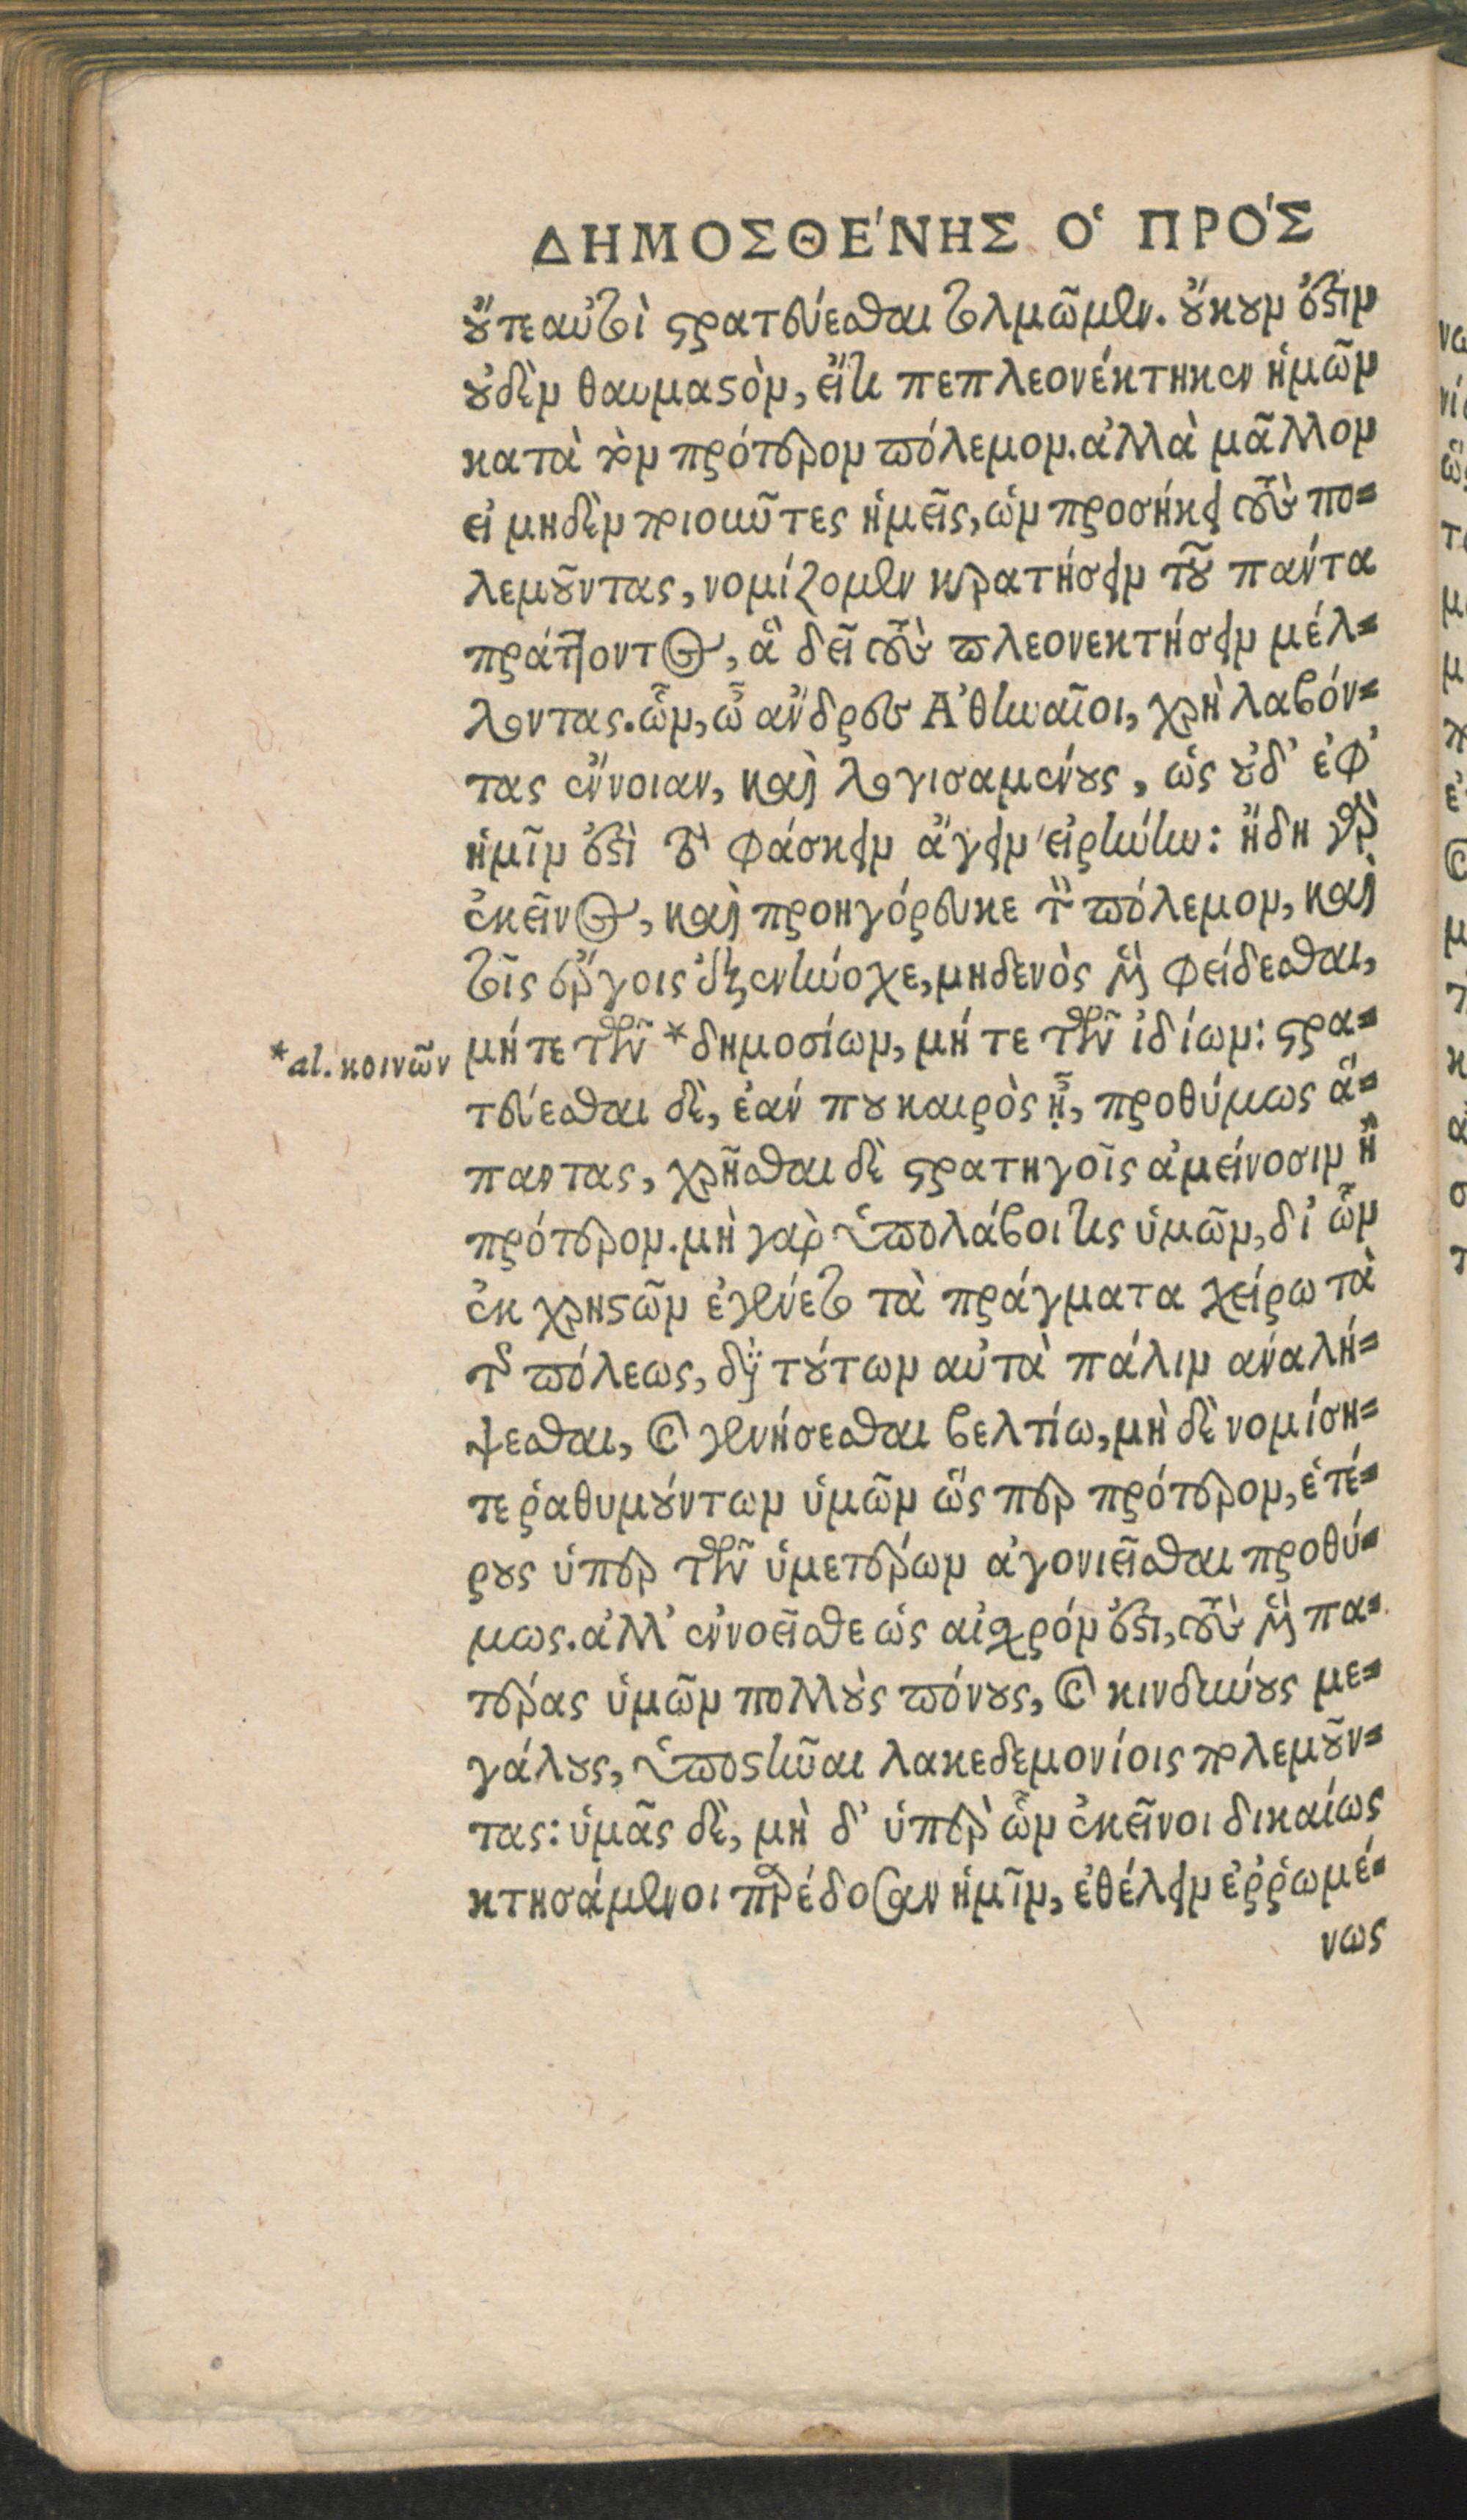 ΔΗΜΟΣΘΕ´ΝΗΣ Ο῾ ΠΡΟ´Σ
οὔτε αὐτοὶ στρατεύεσθαι τολμῶμεν. οὔκουν ἐστὶν
οὐδὲν θαυμαστὸν, εἴτι πεπλεονέκτηκεν ἡμῶν
κατὰ τὸν πρότερον πόλεμον. ἀλλὰ μᾶλλον
εἰ μηδὲν ποιοῦντες ἡμεῖς, ὧν προσήκει τοὺς πο=
λεμοῦντας, νομίζομεν κρατήσειν τοῦ πάντα
πράττοντος, ἃ δεῖ τοὺς πλεονεκτήσειν μέλ=
λοντας. ὧν, ὦ ἄνδρες Ἀθηναῖοι, χρὴ λαβόν=
τας ἔννοιαν, καὶ λογισαμένους, ὡς οὐδ' ἐφ'
ἡμῖν ἐστὶ τὸ φάσκειν ἄγειν εἰρήνην: ἤδη γὰρ
ἐκεῖνος, καὶ προηγόρευκε τὸν πόλεμον, καὶ
τοῖς ἔργοις ἐξενήνοχε, μηδενὸς μὲν φείδεσθαι,
μήτε τῶν *δημοσίων, μή τε τῶν ἰδίων: στρα=
*al. κοινῶν
τεύεσθαι δὲ, ἐάν που καιρὸς ᾖ, προθύμως ἅ=
παντας, χρῆσθαι δὲ στρατηγοῖς ἀμείνοσιν ἢ
πρότερον. μὴ γὰρ ὑπολάβοι τις ὑμῶν, δι' ὧν
ἐκ χρηστῶν ἐγένετο τὰ πράγματα χείρω τὰ
τῆς πόλεως, διὰ τούτων αὐτὰ πάλιν ἀναλή=
ψεσθαι, καὶ γενήσεσθαι βελτίω, μὴ δὲ νομίση=
τε ῥαθυμούντων ὑμῶν ὥς περ πρότερον, ἑτέ=
ρους ὑπὲρ τῶν ὑμετέρων ἀγονιεῖσθαι προθύ=
μως. ἀλλ' ἐννοεῖσθε ὡς αἰσχρόν ἐστι, τοὺς μὲν πα=
τέρας ὑμῶν πολλοὺς πόνους, καὶ κινδύνους με=
γάλους, ὑποστῆναι λακεδεμονίοις πολεμοῦν=
τας: ὑμᾶς δὲ, μὴ δ' ὑπὲρ ὧν ἐκεῖνοι δικαίως
κτησάμενοι παρέδοσαν ἡμῖν, ἐθέλειν ἐῤῥωμέ=
νως